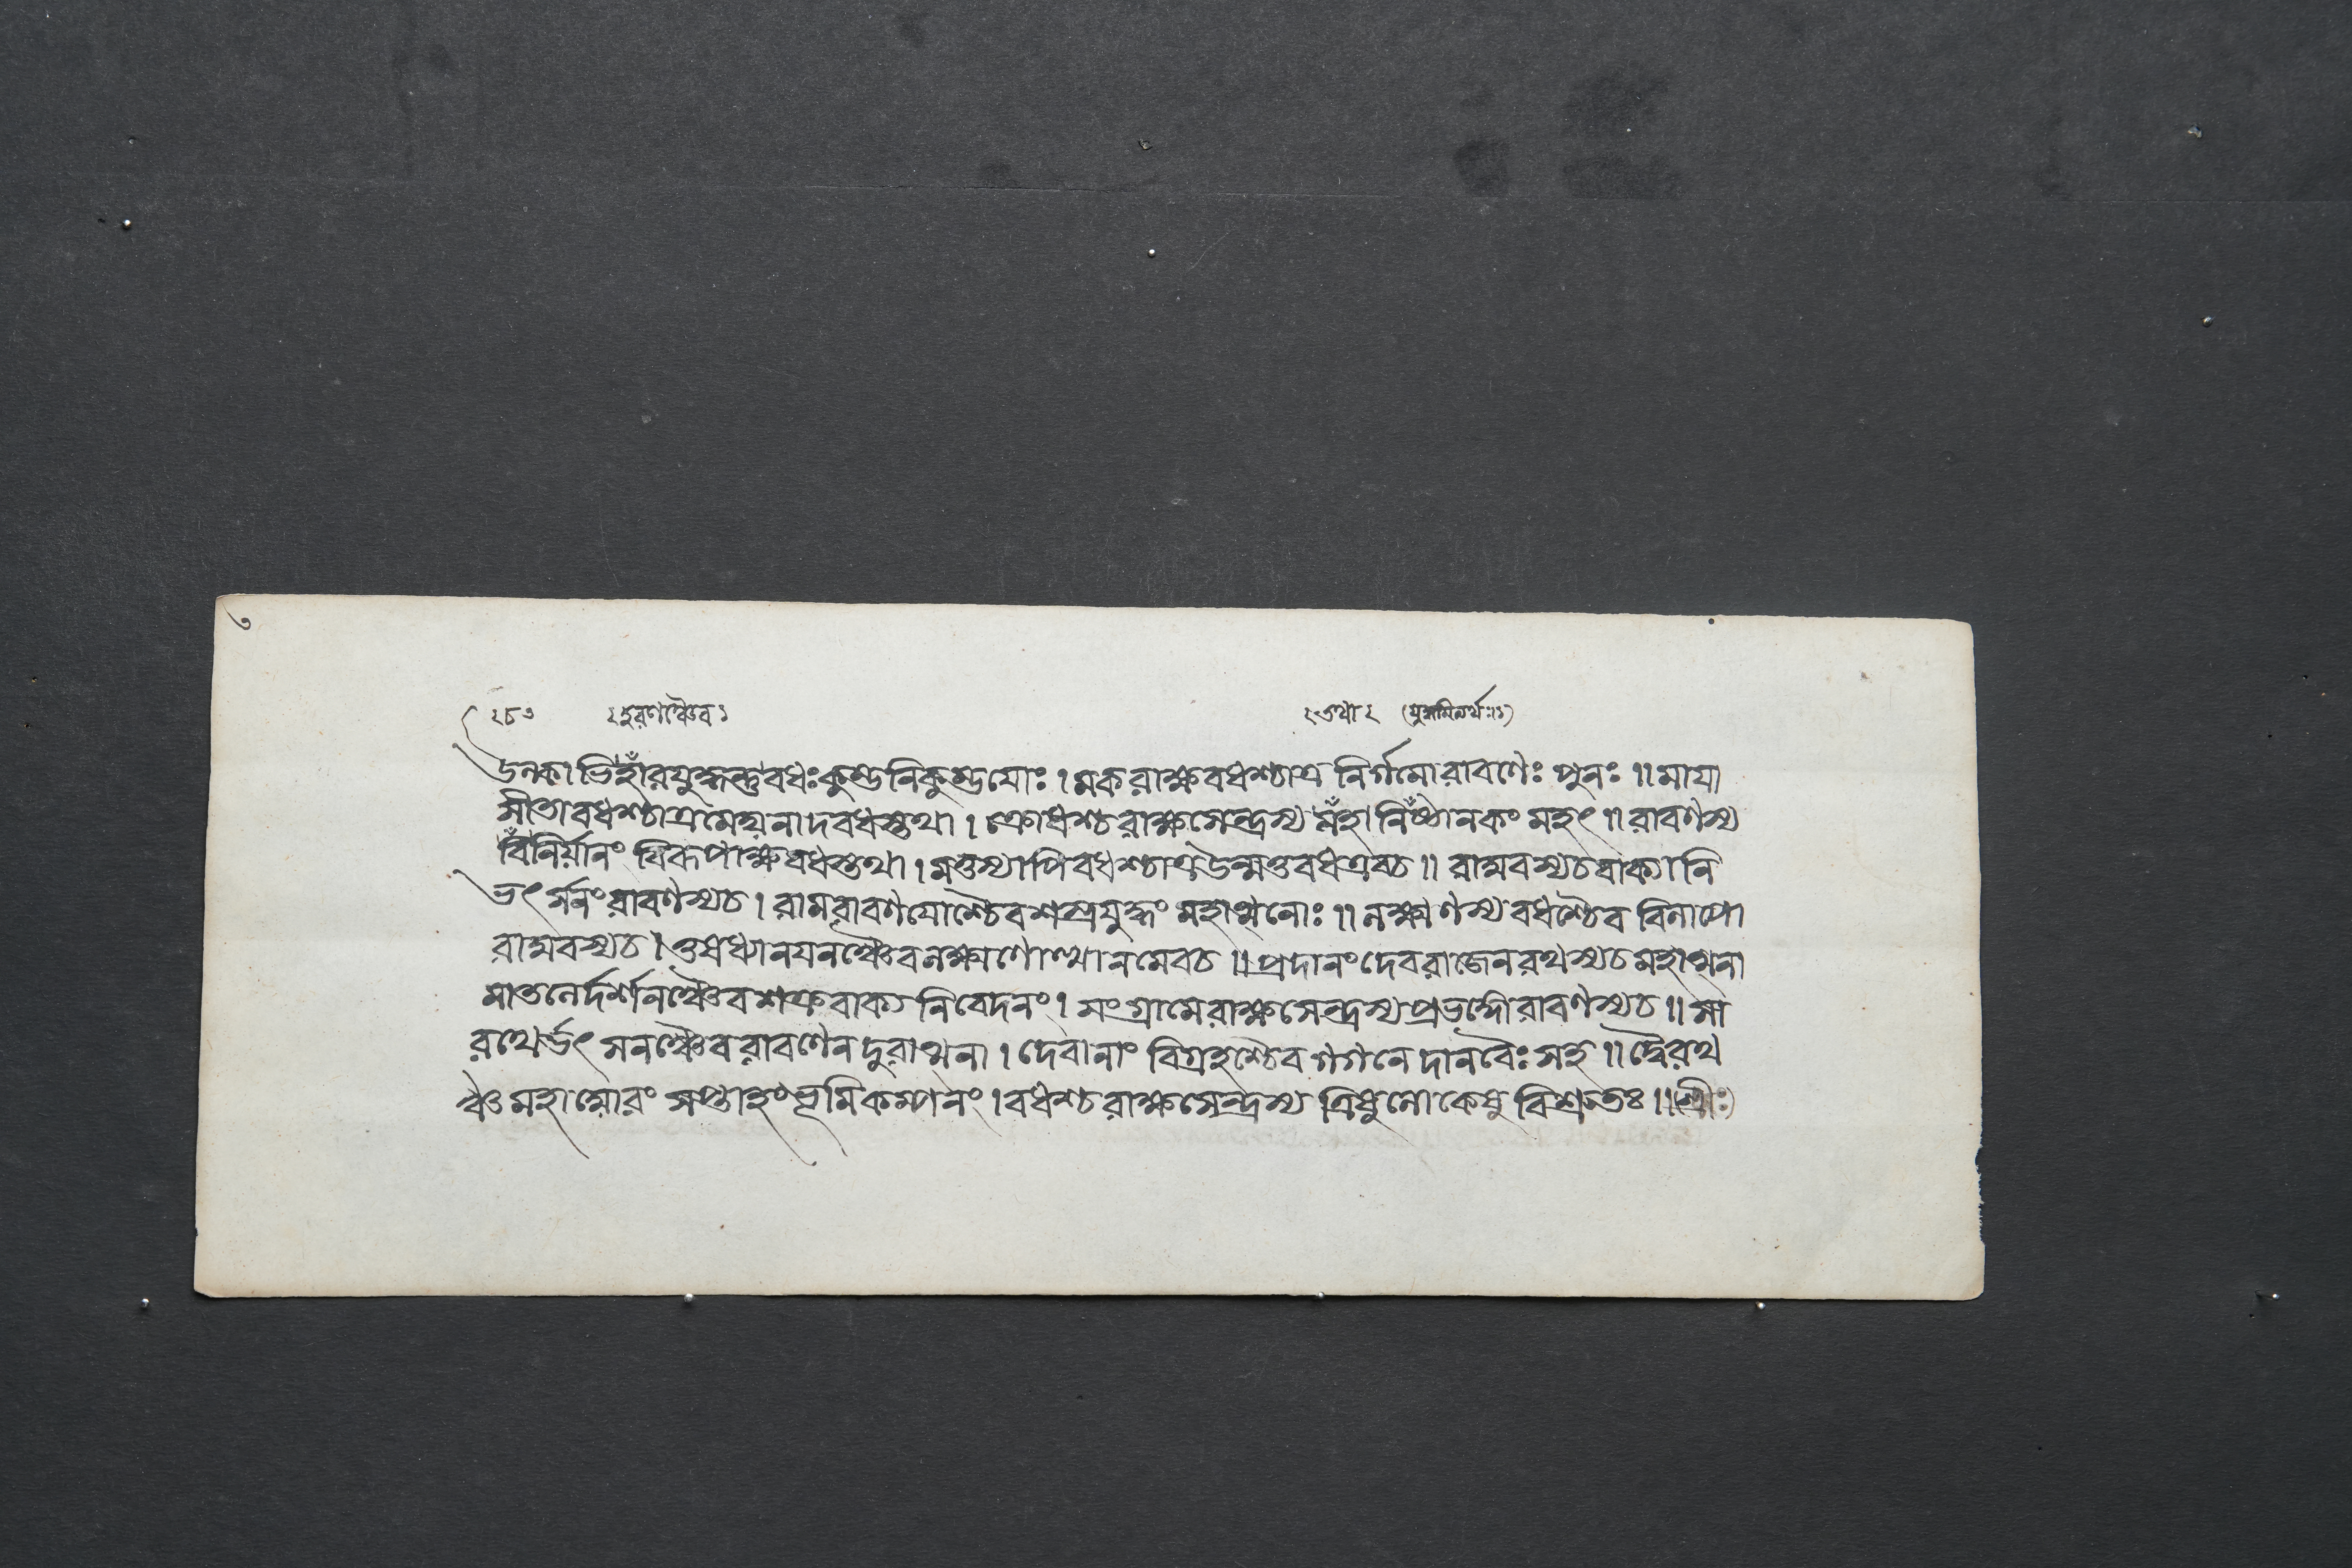 হরণঞ্চৈব ১ তথা ২
উলকাভিহাঁরযুদ্ধন্তুবধঃকুম্ভনিকুম্ভযোঃ। মকরাক্ষবধশ্চাত্র নির্গমোরাবণেঃ পুনঃ॥ মাযা
সীতাবধশ্চাত্রমেঘনাদবধস্তথা। ক্রোধশ্চরাক্ষসেন্দ্রস্য মঁহানিঁষ্টানকং মহৎ॥ রাবণস্য
বিঁনির্য়ানং বিরূপাক্ষবধস্তথা। মত্তস্যাপিবধশ্চাত্রউন্মত্তবধএবচ॥ রাঘবস্যচবাক্যানি
ভৎর্সনংরাবণস্যচ। রামরাবণযোশ্চৈবশস্ত্রযুদ্ধং মহাত্মনোঃ॥ লক্ষ্মণস্যবধশ্চৈব বিলাপো
রাঘবস্যচ। ওষধ্যানযনঞ্চৈবলক্ষ্মণোত্থানমেবচ॥ প্রদানংদেবরাজেনরথস্যচমহাত্মনা
মাতলের্দর্শনঞ্চৈবশত্রুবাক্য নিবেদনং। সংগ্রামেরাক্ষসেন্দ্রস্যপ্রভঙ্গোরাবণস্যচ॥ সা
রথের্ভৎসনঞ্চৈবরাবণেনদুরাত্মনা। দেবানাং বিগ্রহশ্চৈব গগনেদানবৈঃ সহ॥ দ্বৈরথ
ঞ্চ মহাঘোরং সপ্তাহংভূমিকম্পনং। বধশ্চরাক্ষসেন্দ্রস্য ত্রিষুলোকেষু বিশ্রুতঃ॥ (শ্রীঃ)